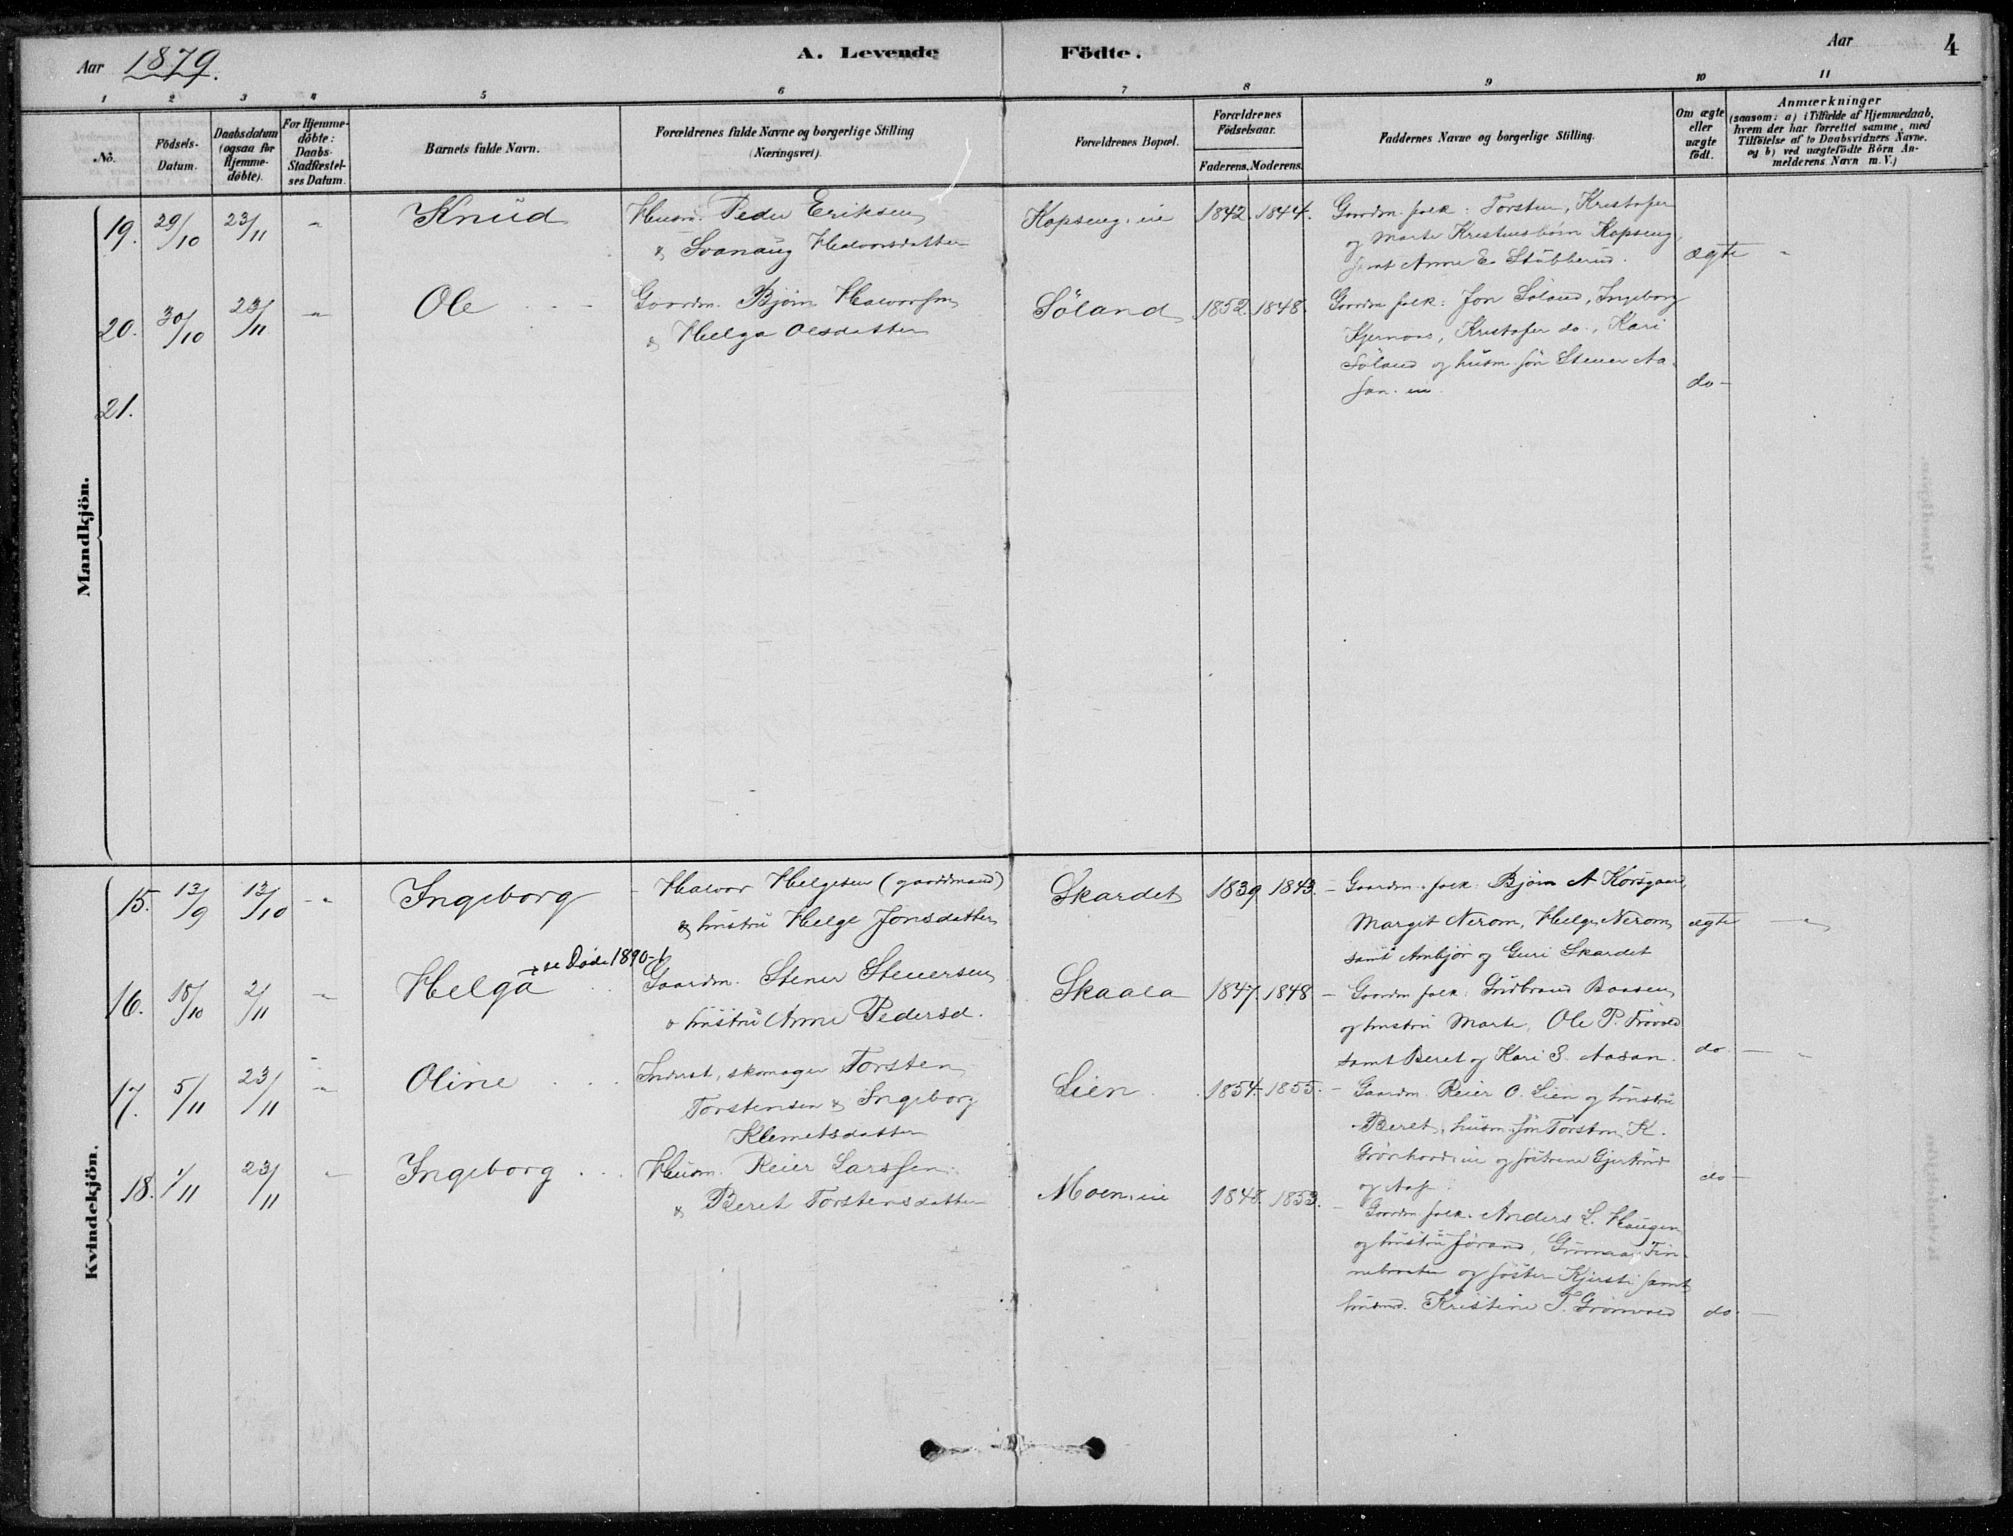 Aar 1879.
A. Levende Födte.
Aar 4
1 2 3 4 5 6 7 8 9 10 11
No.
Födsels-Datum.
Daabsdatum (ogsaa for Hjemme-döbte).
For Hjemme-döbte: Daabs-Stadfæstel-ses Datum.
Barnets fulde Navn.
Forældrenes fulde Navne og borgerlige Stilling (Næringsvei).
Forældrenes Bopæl.
Forældrenes Födselsaar.
Faderens. Moderens.
Faddernes Navne og borgerlige Stilling.
Om ægte eller uægte födt.
Anmærkninger
(saasom: a) i Tilfælde af Hjemmedaab,
hvem der har forrettet samme, med
Tilföielse af to Daabsvidners Navne.
og b) ved uægtefödte Börn An-
melderens Navn m. V.)
Mandkjön.
19. 29/10 23/11 " Knud Husm. Peder Eriksen Kopseng. eie 1842. 1844. Gaardm. folk: Torsten, Kristofer
& Svanaug Halvorsdatter og Marte Kristensbörn Kopseng
samt Anne E. Stubberud. ægte "
20. 30/10 23/11 " Ole Gaardm. Björn Halvorsen Söland 1852. 1848. Gaardm folk: Jon Söland, Ingeborg
& Helga Olsdatter Kjernaas, Kristofer do., Kari
Söland og husm. sön Stener Aa-
san. eie. do -
21.
Kvindekjön.
15. 13/9 12/10 " Ingeborg Halvor Helgesen (gaardmand) Skardet 1839 1843. - Gaardm. folk: Björn A Korsgaard,
& hustru Helge Jonsdatter Margit Nerom, Helge Nerom, ægte "
samt Ambjör og Guri Skardet
se Döde 1890-1
16. 18/10 2/11 " Helga Gaardm. Stener Stenersen Skaala 1847. 1848 - Gaardm folk: Gudbrand Baasen,
o hustru Anne Pedersd. og hustru Marte, Ole P.
samt Beret og Kari S. Aasan. do - "
17. 5/11 23/11 " Oline Inderst, skomager Torsten Lien 1854. 1855. - Gaardm. Reier O. Lien og hustru
Torstensen & Ingeborg Beret, husm. sön Torsten K.
Klemetsdatter eie og söstrene Gjertrud
og do -
18. 1/11 23/11 " Ingeborg Husm. Reier Larssen Moen. eie 1848. 1853. - Gaardm folk. Anders L. Haugen
& Beret Torstensdatter og hustru Jörand, Tin-
og söster Kjersti samt
Kristine T. Grönvold do -